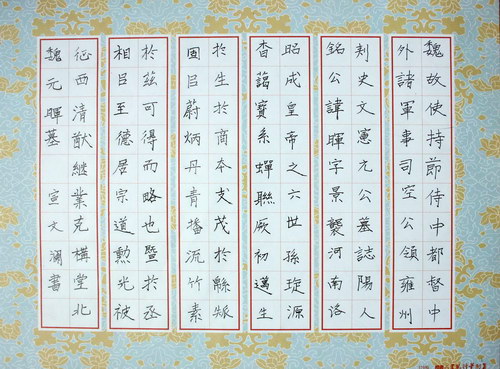 魏故使持節侍中都督中
外諸軍事司空公領雍州
刾史文憲元公墓誌陽人
銘公諱暉字景襲河南洛
昭成皇帝之六世孫琁源
杳藹寶系蟬聯厥初邁生
於生於商本支茂於緜瓞
固㠯蔚炳丹青播流竹素
於茲可得而略也暨於丞
相㠯至德居宗道勳光被
征西清猷繼業克構堂北
魏元暉墓 宣文瀾書